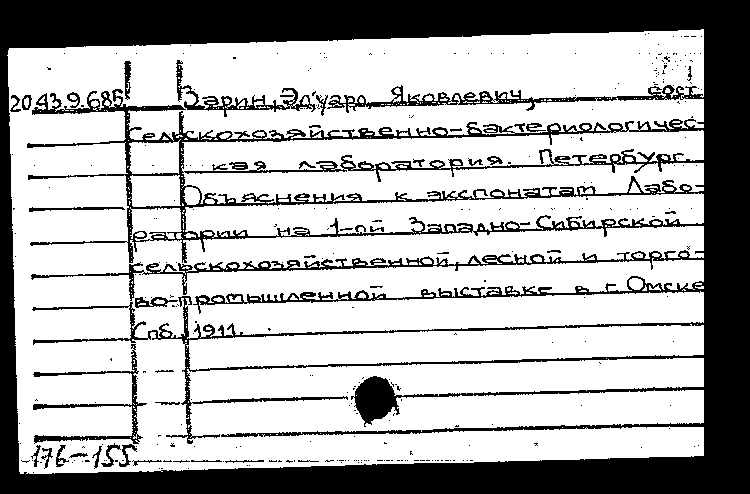 20.43.9.685 Зарин, Эдуард Яковлевич, сост.
Сельскохозяйственно-бактериологичес-
кая лаборатория. Петербург.
Объяснения к экспонатам Лабо-
ратории на 1-ой Западно-Сибирской
сельскохозяйственной, лесной и торго-
во-промышленной выставке в г. Омске
Спб., 1911.
176-155.